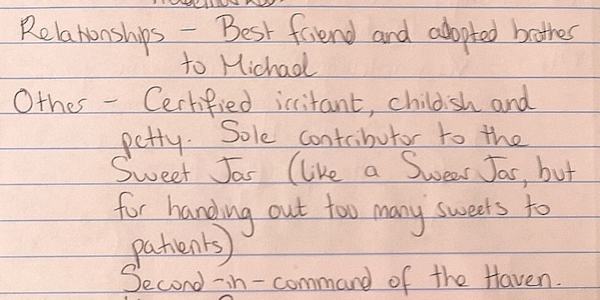 Relationships - Best friend and adopted brother
to Michael
Other - Certified irritant, childish and
petty. Sole contributor to the
Sweet Jar (like a Swear Jar, but
for handing out too many sweets to
patients)
Second-in-command of the Haven.